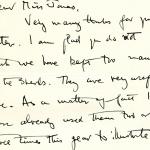 ear Miss Jonas,
Very many thanks for yo
tter. I am glad you do not
we have kept too man
the sherds. They are very us
e. As a matter of fact I
already used them
times this year to illustrate